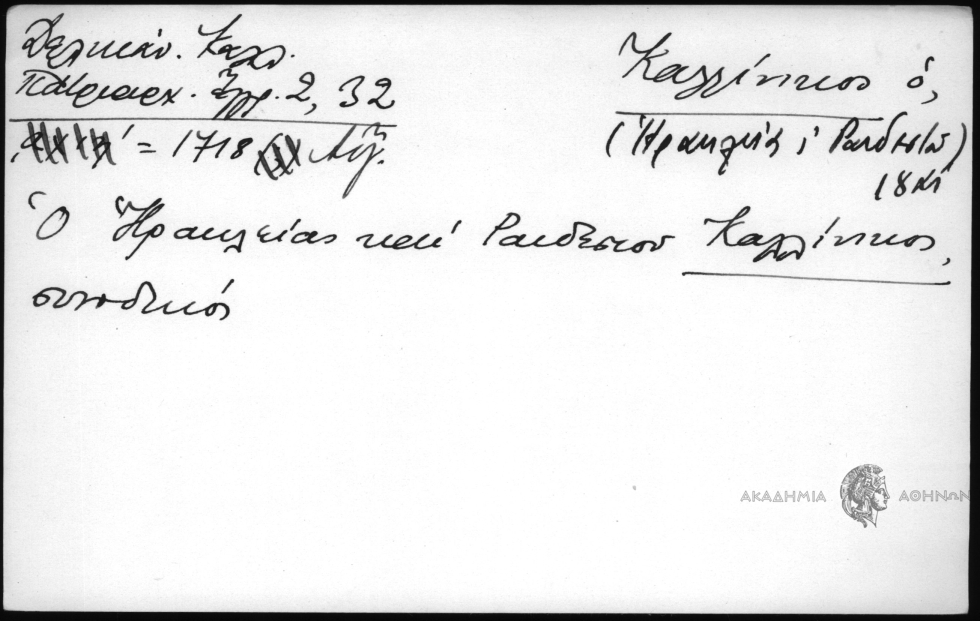 Δελικάν. Καλλ.
Πατριαρχ. Ἔγγρ. 2, 32
= 1718 Αὔγ.
Καλλίνικος ὁ,
(Ἡρακλείας ἱ Ραιδεστοῦ)
18 αἰ
Ὁ Ἡρακλείας καὶ Ραιδεστοῦ Καλλίνικος,
συνοδικός
ΑΚΑΔΗΜΙΑ ΑΘΗΝΩΝ